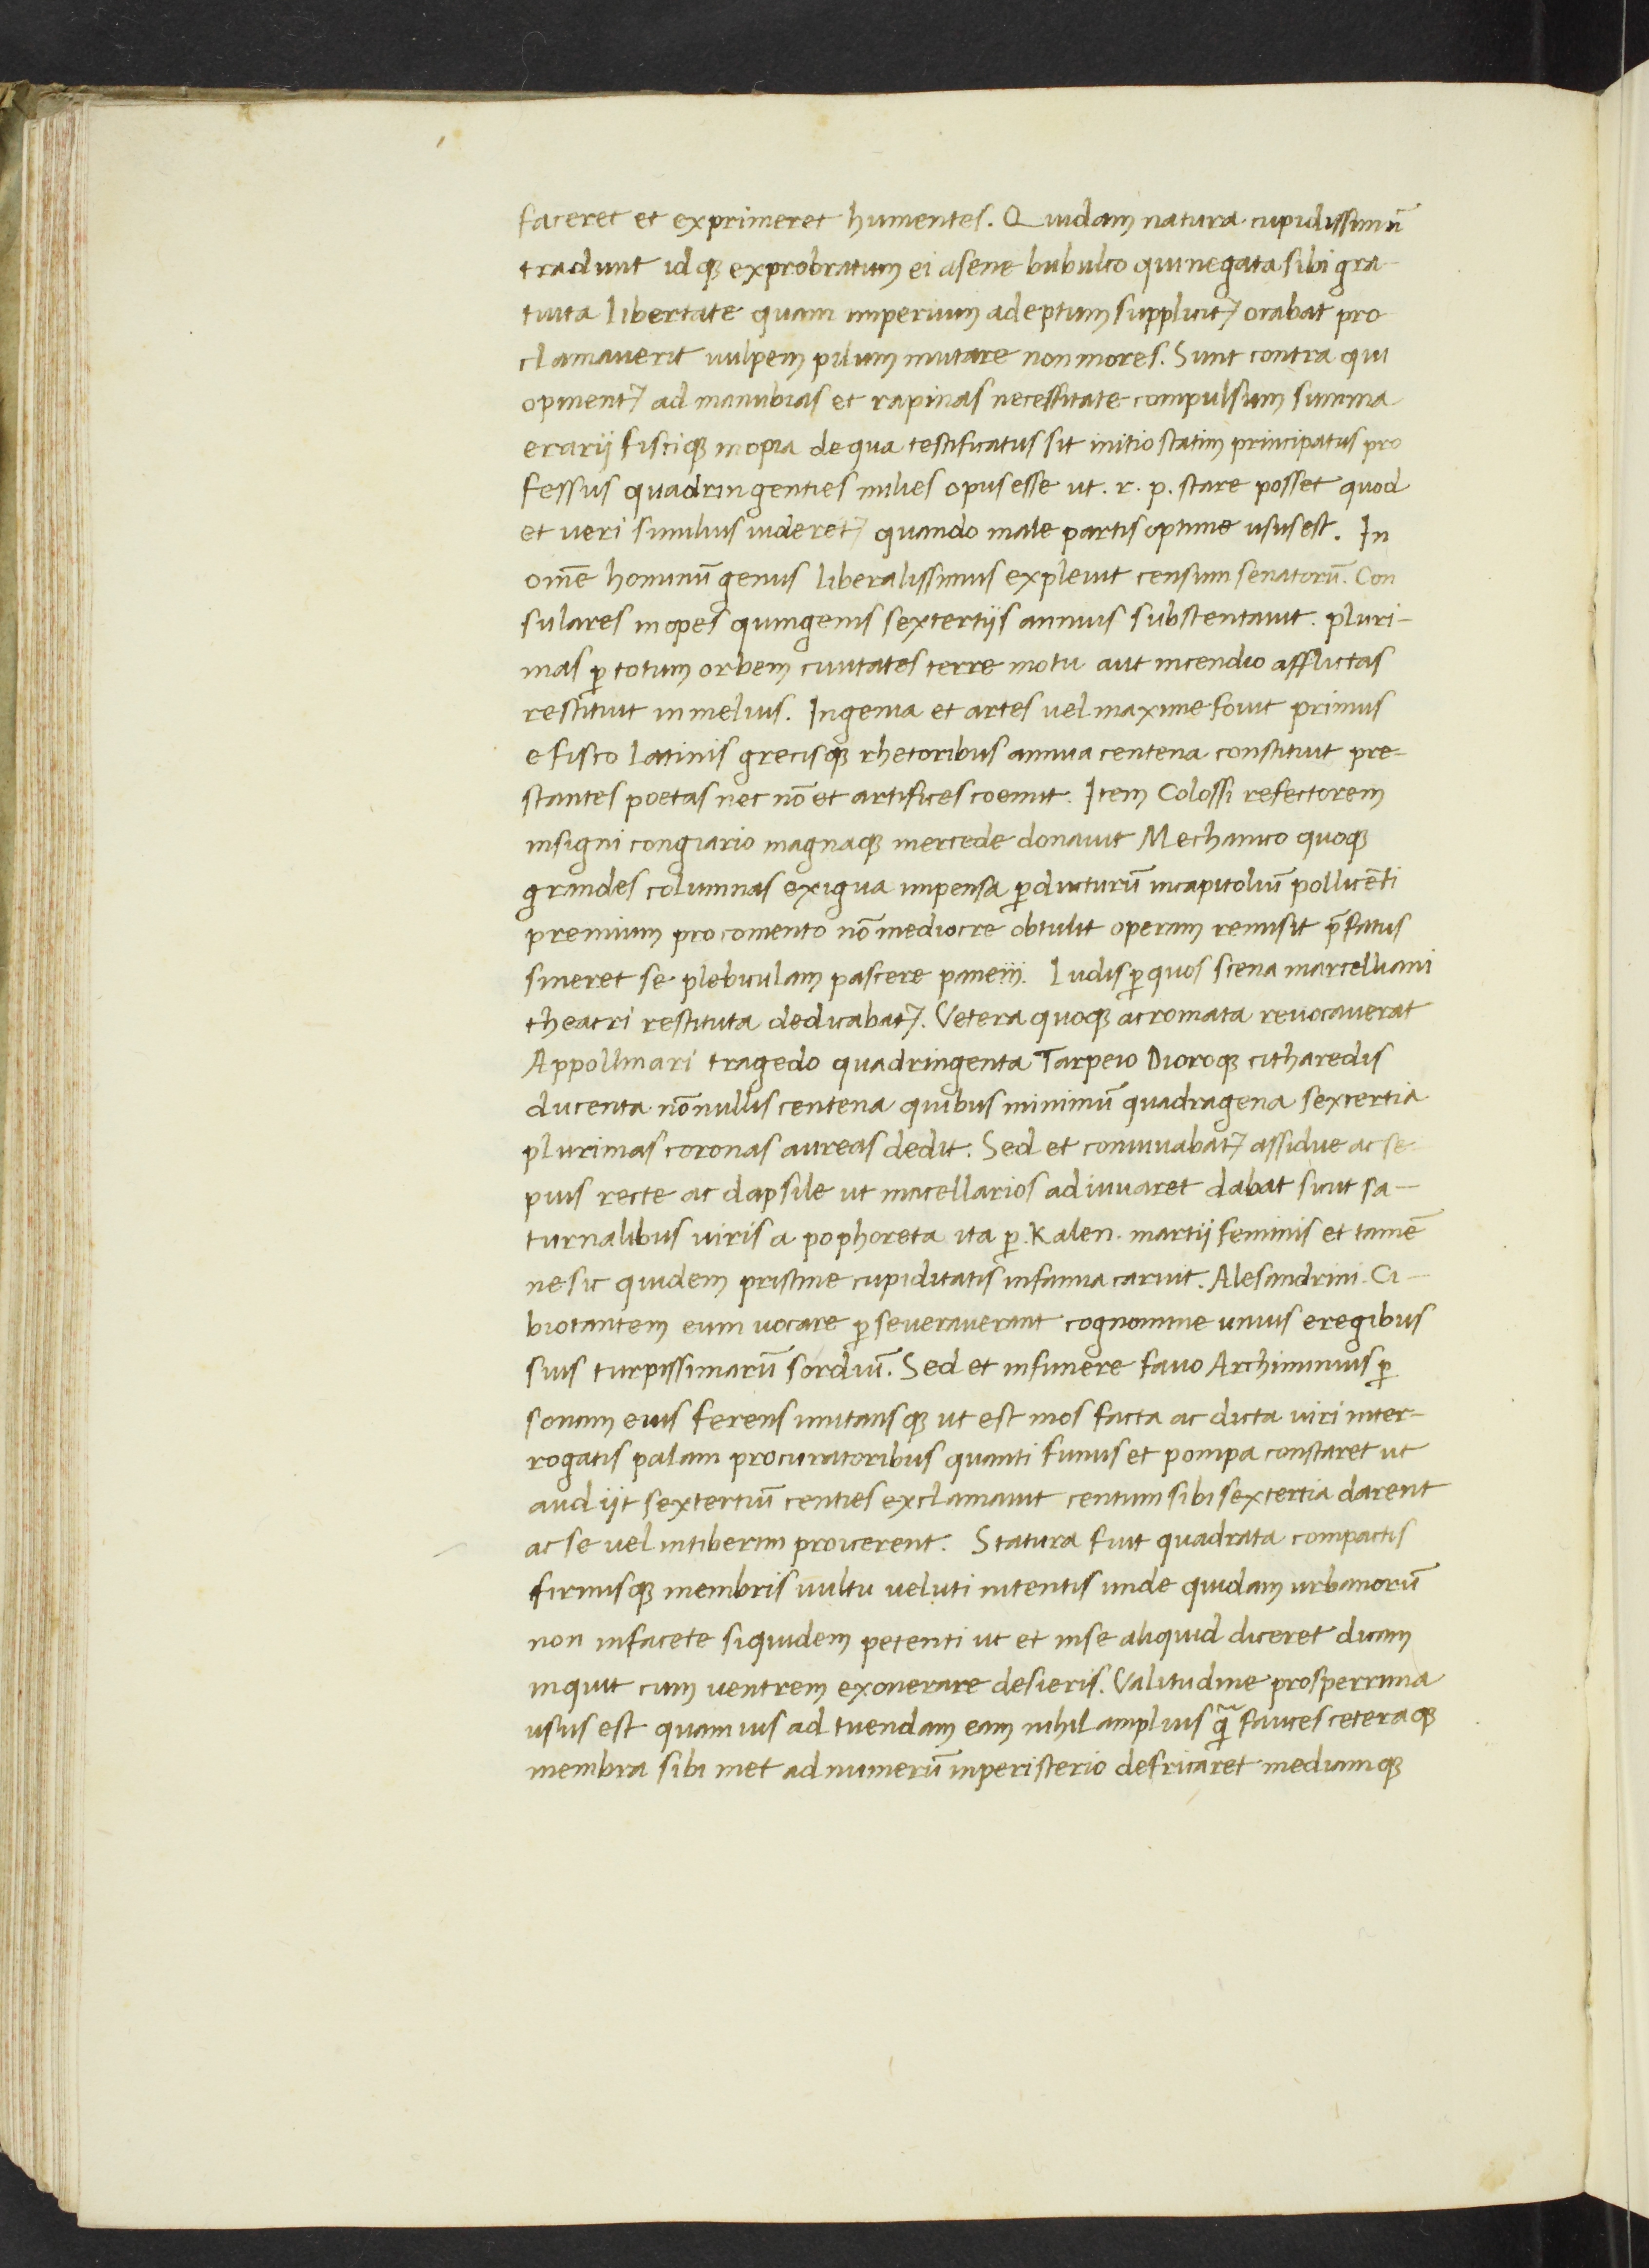 faceret et exprimeret humentes. Quidam natura cupidissimū
tradunt idq; exprobratum ei a sene bubulco qui negata sibi gra-
tuita libertate quam imperium adeptum suppliciter orabat pro
clamauerit uulpem pilum mutare non mores. Sunt contra qui
opinentur ad manubias et rapinas necessitate compulsum summa
erarij fiscique inopia de qua testificatus sit initio statim principatus pro
fessus quadringenties milies opus esse ut. r. p. stare posset quod
et ueri similius uideretur quando male partis optime usus est. In
oīne hominū genus liberalissimus expleuit censum senatorū. Con
sulares inopes quingenis sextertijs annuis substentauit. pluri-
mas p̄ totum orbem ciuitates terre motu aut incendio afflictas
restituit in melius. Ingenia et artes uel maxime fouit primus
e fisco latinis grecisq; rhetoribus annua centena constituit pre-
stantes poetas nec nō et artifices coemit. Item Colossi refectorem
insigni congiario magnaq; mercede donauit Mechanico quoq;
grandes columnas exigua impensa p̄ducturū in capitoliū pollicēti
premium pro comento nō mediocre obtulit operam remisit p̄fatus
sineret se plebiculam pascere Ludis p̄ quos scena marcelliani
theatri restituta dedicabatur. Vetera quoq; acromata reuocauerat
Appollinari tragedo quadringenta Tarpeio Dioroq; citharedis
ducenta nōnullis centena quibus minimū quadragena sextertia
plurimas coronas aureas dedit. Sed et conuiuabatur assidue ac se-
pius recte ac dapsile ut macellarios adiuuaret dabat sicut sa-
turnalibus uiris apophoreta ita p̄. Kalen. martij feminis et tamē
ne sic quidem pristine cupiditatis infamia caruit. Alesandrini Ci-
biotantem eum uocare p̄seuerauerant cognomine unius e regibus
suis turpissimarū sordiū. Sed et in funere fauo Archimimus p̄
sonam eius ferens imitansq; ut est mos facta ac dicta uiri inter-
rogatis palam procuratoribus quanti funus et pompa constaret ut
audijt sextertiū centies exclamauit centum sibi sextertia darent
ac se uel in tiberim proicerent. Statura fuit quadrata compactis
firmisq; membris uultu ueluti nitentis unde quidam urbanorū
non infacete siquidem petenti ut et in se aliquid diceret dicam
inquit cum uentrem exonerare desieris. Valitudine prosperrima
usus est quamuis ad tuendam eam nihil amplius q̄ fauces ceteraq;
membra sibi met ad numerū in peristerio defricaret mediamq;